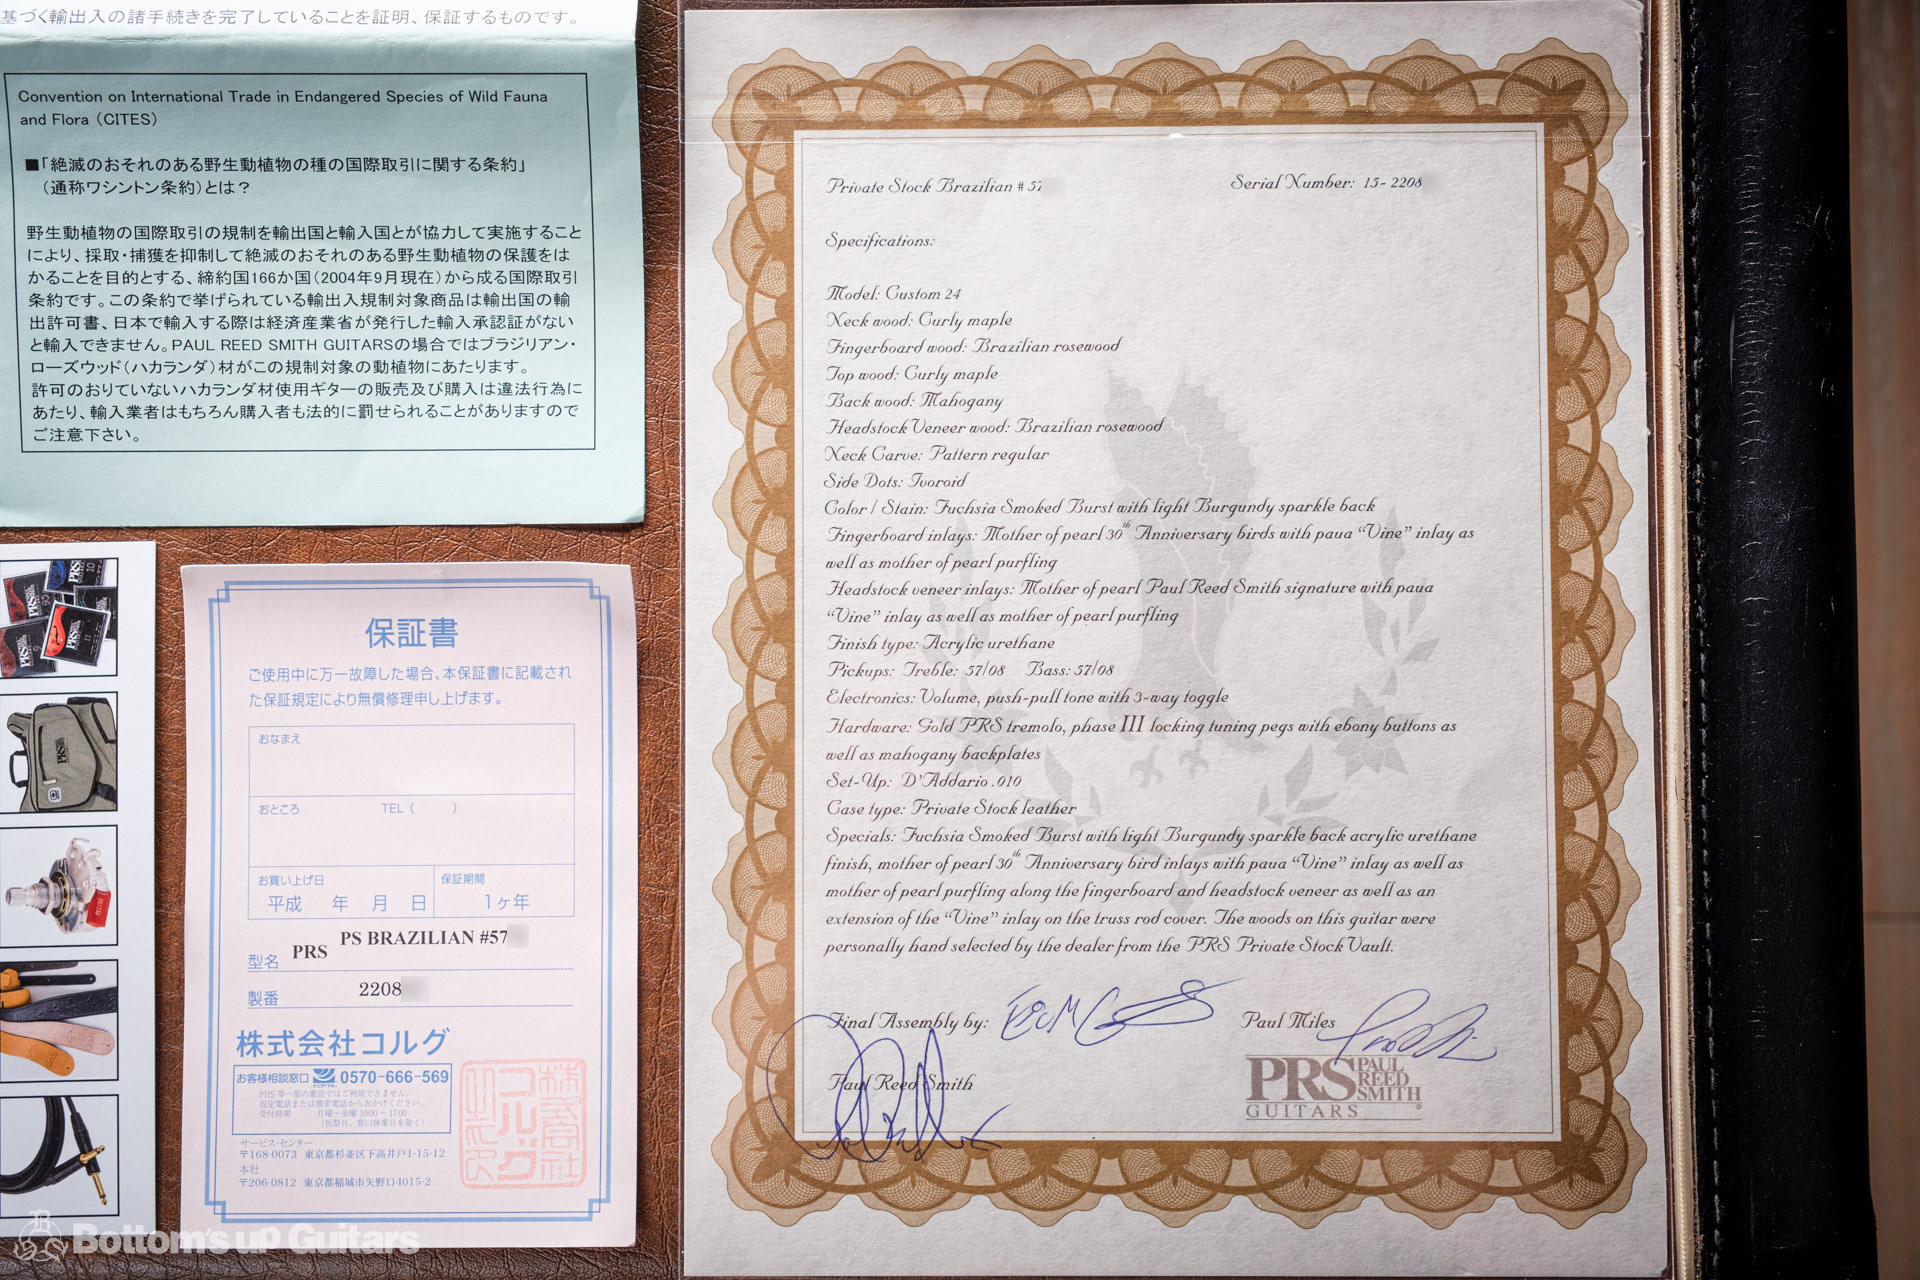 基づく輸出入の諸手続きを完了していることを証明、保証するものです。
Convention on International Trade in Endangered Species of Wild Fauna
and Flora (CITES)
■「絶滅のおそれのある野生動植物の種の国際取引に関する条約」
（通称ワシントン条約）とは？
野生動植物の国際取引の規制を輸出国と輸入国とが協力して実施すること
により、採取・捕獲を抑制して絶滅のおそれのある野生動植物の保護をは
かることを目的とする、締約国166か国（2004年9月現在）から成る国際取引
条約です。この条約で挙げられている輸出入規制対象商品は輸出国の輸
出許可書、日本で輸入する際は経済産業省が発行した輸入承認証がない
と輸入できません。PAUL REED SMITH GUITARSの場合ではブラジリアン・
ローズウッド（ハカランダ）材がこの規制対象の動植物にあたります。
許可のおりていないハカランダ材使用ギターの販売及び購入は違法行為に
あたり、輸入業者はもちろん購入者も法的に罰せられることがありますので
ご注意下さい。
保証書
ご使用中に万一故障した場合、本保証書に記載され
た保証規定により無償修理申し上げます。
おなまえ
おところ TEL ( )
お買い上げ日 保証期間
平成 年 月 日 1ヶ年
型名 PRS PS BRAZILIAN #57
製番 2208
株式会社コルグ
お客様相談窓口 0570-666-569
PHS等一部の電話ではご利用できません。
固定電話または携帯電話からおかけください。
受付時間 月曜～金曜 10:00～17:00
(祝祭日、窓口休業日を除く)
サービス・センター
〒168-0073 東京都杉並区下高井戸1-15-12
本社
〒206-0812 東京都稲城市矢野口4015-2
Bottom's up Guitars
Private Stock Brazilian # 57
Serial Number: 15- 2208
Specifications:
Model: Custom 24
Neck wood: Curly maple
Fingerboard wood: Brazilian rosewood
Top wood: Curly maple
Back wood: Mahogany
Headstock Veneer wood: Brazilian rosewood
Neck Carve: Pattern regular
Side Dots: Ivoroid
Color / Stain: Fuchsia Smoked Burst with light Burgundy sparkle back
Fingerboard inlays: Mother of pearl 30th Anniversary birds with paua “Vine” inlay as
well as mother of pearl purfling
Headstock veneer inlays: Mother of pearl Paul Reed Smith signature with paua
“Vine” inlay as well as mother of pearl purfling
Finish type: Acrylic urethane
Pickups: Treble: 57/08 Bass: 57/08
Electronics: Volume, push-pull tone with 3-way toggle
Hardware: Gold PRS tremolo, phase III locking tuning pegs with ebony buttons as
well as mahogany backplates
Set-Up: D'Addario .010
Case type: Private Stock leather
Specials: Fuchsia Smoked Burst with light Burgundy sparkle back acrylic urethane
finish, mother of pearl 30th Anniversary bird inlays with paua “Vine” inlay as well as
mother of pearl purfling along the fingerboard and headstock veneer as well as an
extension of the “Vine” inlay on the truss rod cover. The woods on this guitar were
personally hand selected by the dealer from the PRS Private Stock Vault.
Final Assembly by:
Paul Miles
Paul Reed Smith
PRS PAUL REED SMITH
GUITARS